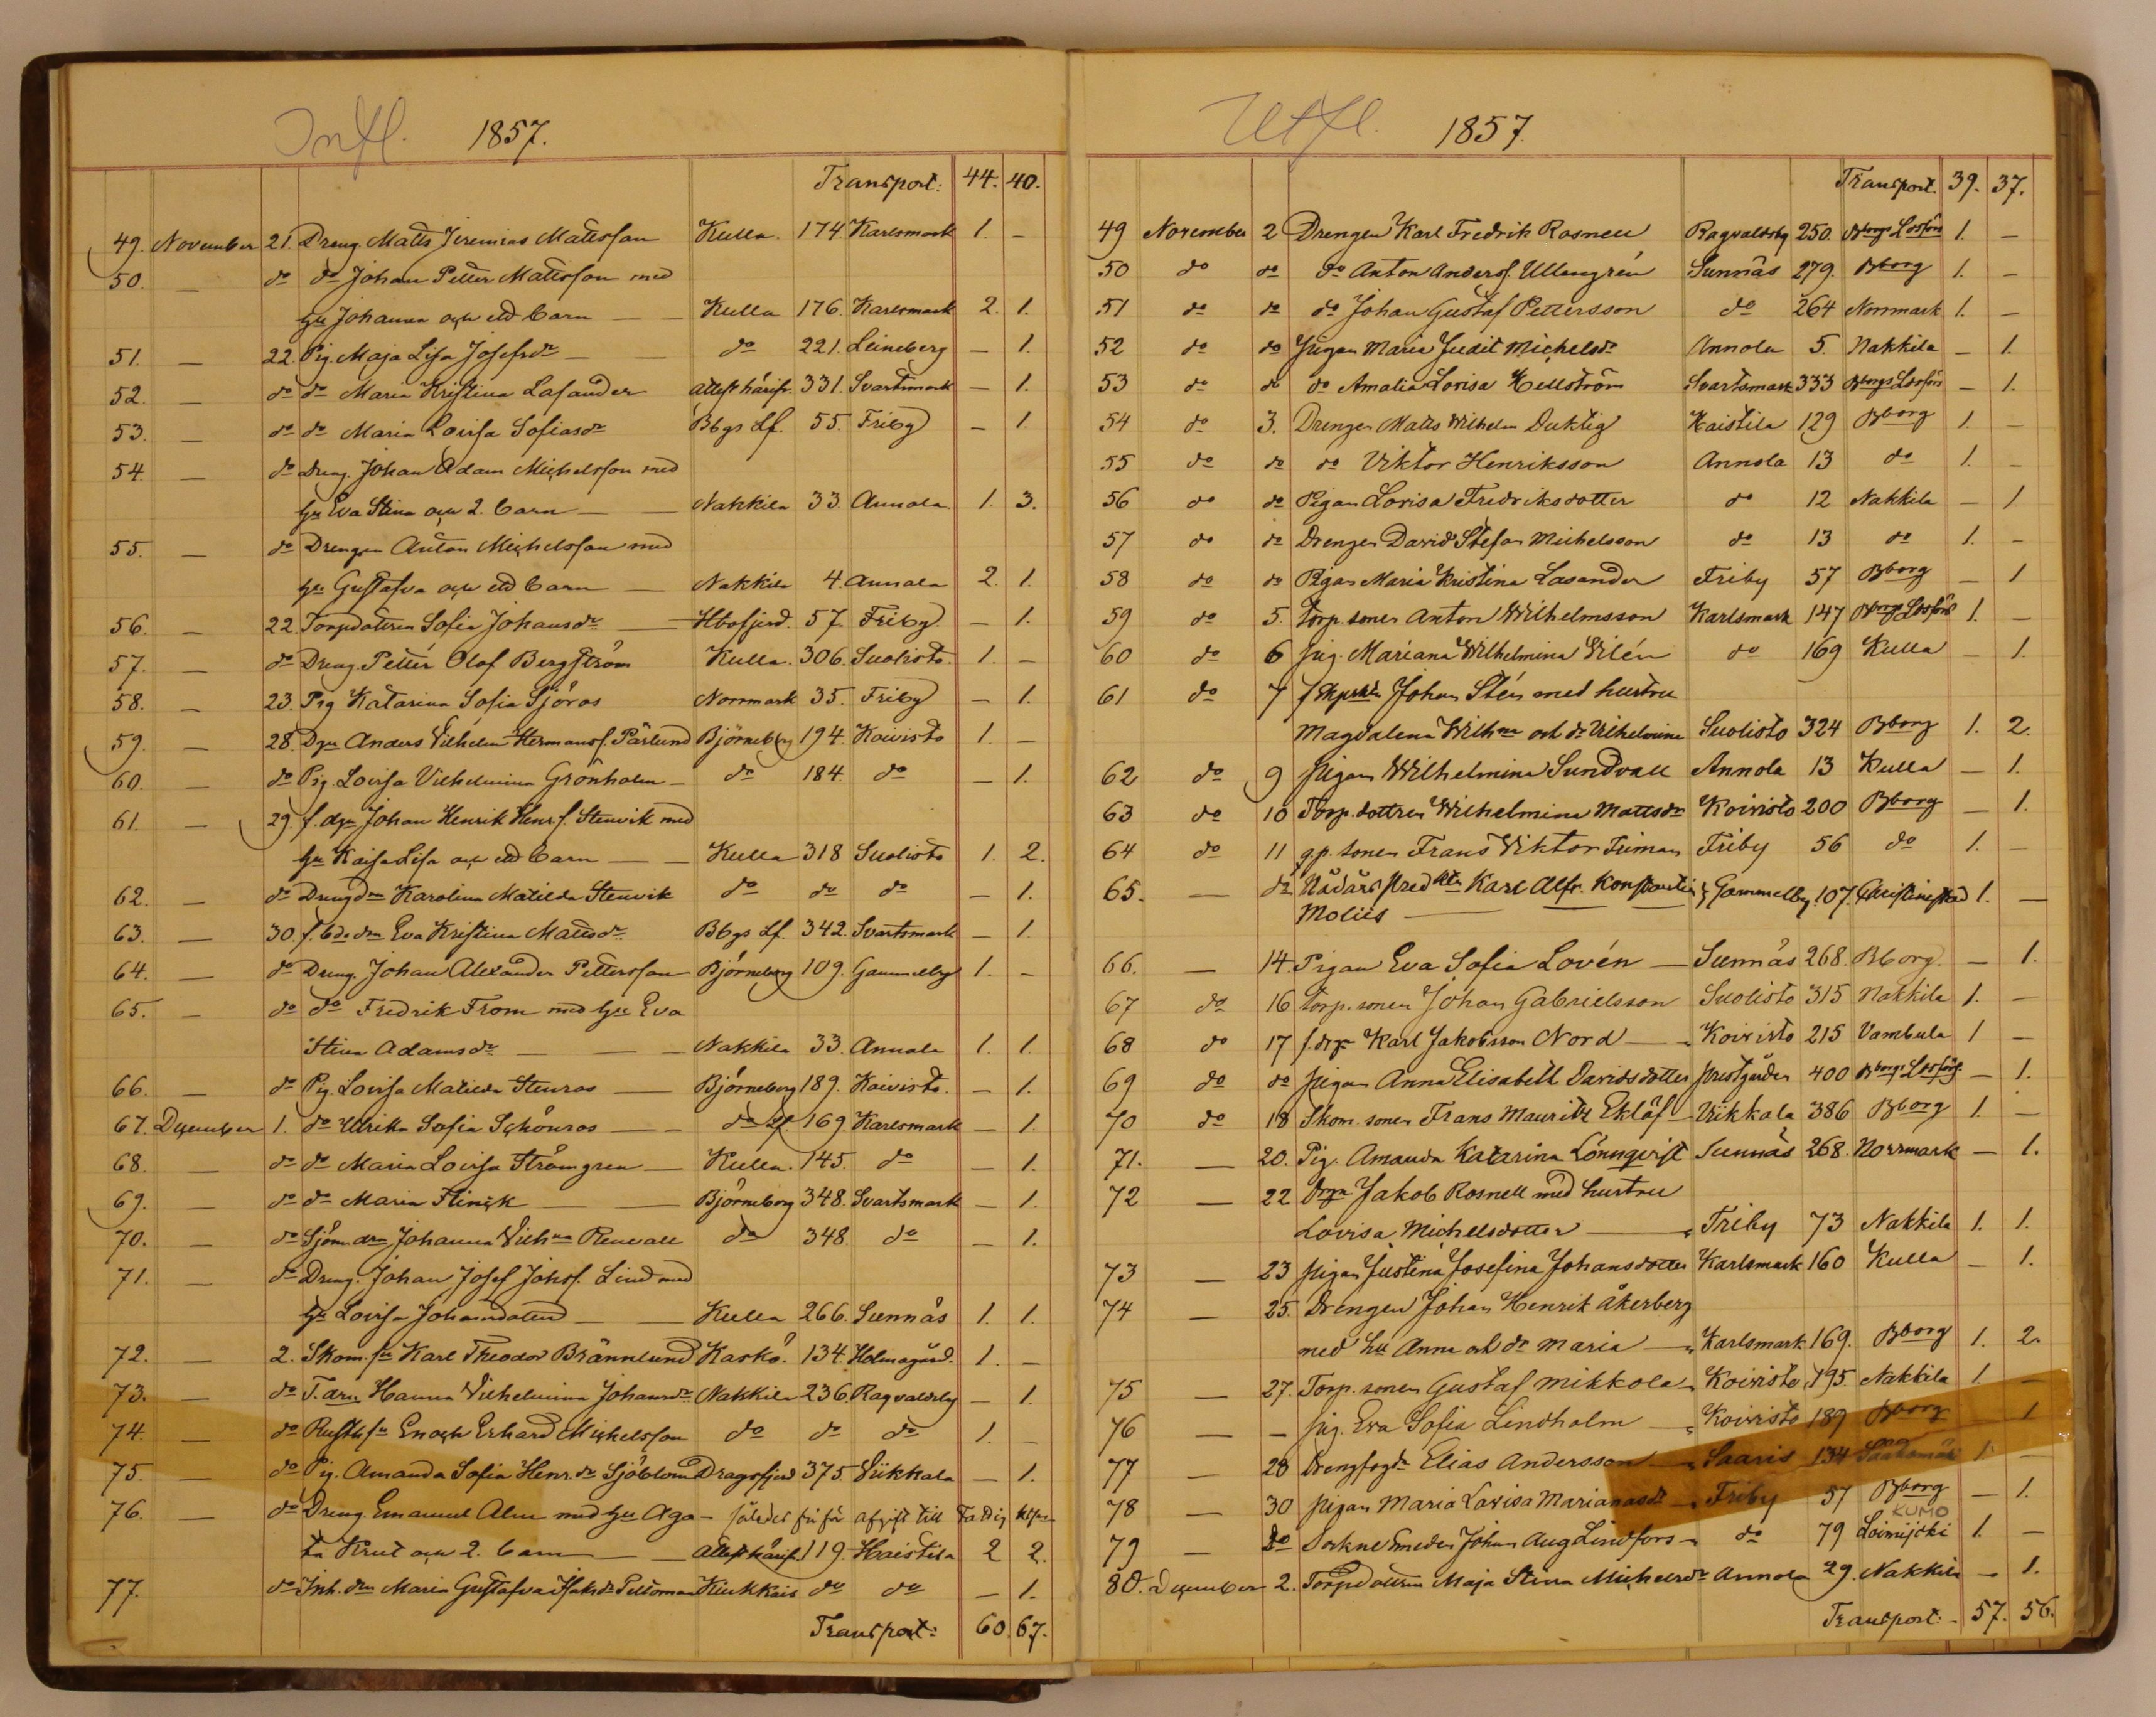 Infl. 1857.
Transport: 44. 40.
49. November 21. Dreng. Matts Jeremias Mattsson Kulla. 174. Karlsmark 1. –
50. — do do Johan Petter Mattsson med
hu Johanna och ett barn — Kulla 176. Karlsmark 2. 1.
51. — 22 Pig. Maja Lisa Josefsdr — do 221. Leineberg — 1.
52. — do do Maria Kristina Lasander Attest härifr. 331. Svartsmark — 1.
53. — do do Maria Lovisa Sofiasdr Bbgs Lf. 55. Friby – 1.
54. — do Dreng. Johan Adam Michelsson med
hu Eva Stina och 2. barn — Nakkila 33. Annola 1. 3.
55. — do Drengen Anton Michelsson med
hu Gustafva och ett barn — Nakkila 4. Annola 2. 1.
56. — 22. Torpdottren Sofia Johansdr — Hbofjerd. 57. Friby – 1.
57. — do Dreng. Petter Olof Bergström Kulla. 306. Suolisto. 1. –
58. — 23. Pig Katarina Sofia Sjöros Norrmark 35. Friby – 1.
59. — 28. Dgn Anders Vilhelm Hermansf. Pärlund Björneborg 194. Koivisto 1. –
60. — do Pig. Lovisa Vilhelmina Grönholm – do 184. do – 1.
61. — 29. f. dgn Johan Henrik Henr.f. Stenvik med
hu Kaisa Lisa och ett barn — Kulla 318 Suolisto 1. 2.
62. — do Drengdrn Karolina Matilda Stenvik do do do — 1.
63. — 30. f. bdedrn Eva Kristina Mattsdr Bbgs Lf. 342. Svartsmark – 1.
64. — do Dreng. Johan Alexander Pettersson Björneborg 109. Gammelby 1. –
65. — do do Fredrik From med hu Eva
Stina Adamsdr — Nakkila 33. Annola 1. 1.
66. — do Pig. Lovisa Matilda Stenros — Björneborg 189. Koivisto. – 1.
67. December 1. do Ulrika Sofia Schönros — do Lf. 169. Karlsmark – 1.
68. — do do Maria Lovisa Strömgren — Kulla. 145. do – 1.
69. — do do Maria Flinck — Björneborg 348. Svartsmark – 1.
70. — do Sjöm.drn Johanna Vilhna Renvall do 348. do – 1.
71. — do Dreng. Johan Josef Johsf. Lind med
hu Lovisa Johansdotter — Kulla 266. Sunnäs 1. 1.
72. — 2. Skom.sn Karl Theodor Brännlund Kaskö. 134. Holmagård. 1. –
73. — do T.drn Hanna Vilhelmina Johansdr Nakkila 236. Ragvaldsby – 1.
74. — do Rusth.sn Enoch Erhard Michelsson do do do 1. –
75. — do Pig. Amanda Sofia Henr.dr Sjöblom Dragsfjerd 375. Viikkala – 1.
76. — do Dreng. Emanuel Alm med hu Aga- således fri för afgift till Fattig
ta Krut och 2. barn — Attest härifr. 119. Haistila 2 2.
77. — do Inh.drn Maria Gustafva Isaksdr Peltoman Kiukkais do do – 1.
Transport: 60. 67.
Utfl. 1857.
Transport. 39. 37.
49 November 2 Drengen Karl Fredrik Rosnell Ragvaldsby 250. Bborgs Losförs 1. –
50 do do do Anton Andersf. Ullengrén Sunnäs 279. Bborg 1. –
51 do do do Johan Gustaf Pettersson do 264 Norrmark 1. –
52 do do Pigan Maria Judit Michelsdr Annola 5. Nakkila – 1.
53 do do do Amalia Lovisa Hellström Svartsmark 333 Bborgs Losförs – 1.
54 do 3. Drengen Matts Wilhelm Duktig Haistila 129 Bborg 1. –
55 do do do Viktor Henriksson Annola 13 do 1. –
56 do do Pigan Lovisa Fredriksdotter do 12 Nakkila – 1
57 do do Drengen David Stefan Michelsson do 13 do 1. –
58 do do Pigan Maria Kristina Lasander Friby 57 Bborg – 1
59 do 5. Torp. sonen Anton Wilhelmsson Karlsmark 147 Bborgs Losförs 1. –
60 do 6 Pig. Mariana Wilhelmina Vilén do 169 Kulla – 1.
61 do 7 Johan Stén med hustru
Magdalena Wilhna och dr Vilhelmina Suolisto 324 Bborg 1. 2.
62 do 9 Pigan Wilhelmina Sundvall Annola 13 Kulla – 1.
63 do 10 Torp. dottren Wilhelmina Mattsdr Koivisto 200 Bborg – 1.
64 do 11 g.p. sonen Frans Viktor Tuman Friby 56 do 1. –
65. — do Nådårs Predktn Karl Alfr. Konstantin Gammelby. 107. Christinestad 1. –
Moliis —
66. — 14. Pigan Eva Sofia Lovén — Sunnäs 268. Bborg. – 1.
67 do 16 Torp. sonen Johan Gabrielsson Suolisto 315 Nakkila 1. –
68 do 17 f. drgn Karl Jakobsson Nord — Koivisto 215 Vambula 1 –
69 do do Pigan Anna Elisabeth Davidsdotter Prestgården 400 Bborgs Losförs – 1.
70 do 18 Skom. sonen Frans Mauritz Eklöf – Vikkala 386 Bborg 1. –
71. — 20. Pig. Amanda Katarina Lönnqvist Sunnäs 268. Norrmark – 1.
72 — 22 Drgn Jakob Rosnell med hustru
Lovisa Michelsdotter — Friby 73 Nakkila 1. 1.
73 — 23 Pigan Justina Josefina Johansdotter Karlsmark 160 Kulla – 1.
74 — 25. Drengen Johan Henrik Åkerberg
med hu Anna och dr Maria — Karlsmark 169. Bborg 1. 2.
75 — 27. Torp. sonen Gustaf Mikkola Koivisto 195. Nakkila 1. –
76 — – Pig. Eva Sofia Lindholm — Koivisto 189 Bborg 1
77 — 28 Drengfogdn Elias Andersson — Saaris 134 Sääksmäki 1. –
78 — 30 Pigan Maria Lovisa Marianasdr Friby 57 Bborg – 1.
KUMO
79 — do Sockne Smeden Johan Aug Lindfors – do 79 Loimijoki 1. –
80. December 2. Torpdottren Maja Stina Michelsdr Annola 29. Nakkila – 1.
Transport: 57. 56.